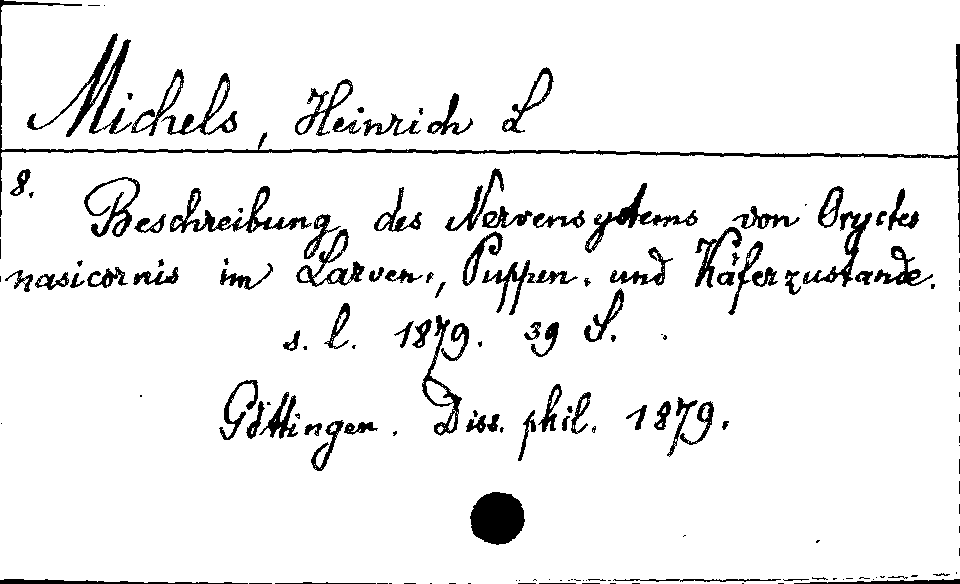 Michels, Heinrich L
8.
Beschreibung des Nervensystems von Oryctes
nasicornis im Larven-, Puppen- und Käferzustande.
s. l. 1879. 39 S.
Göttingen. Diss. phil. 1879.